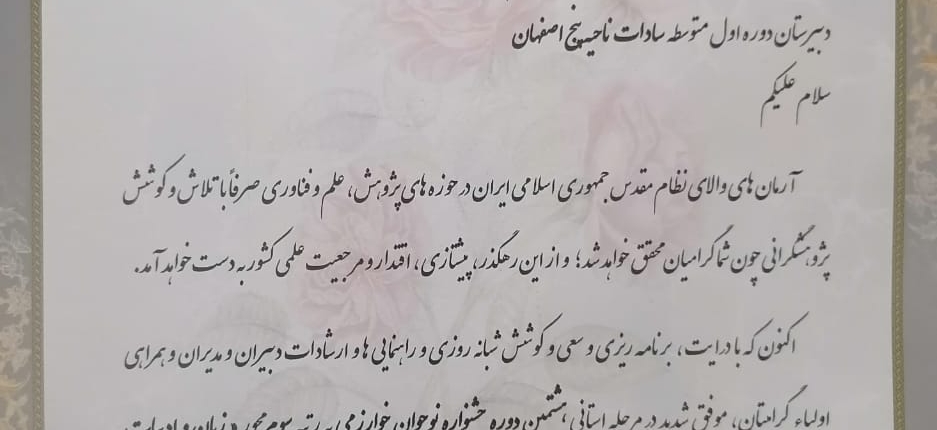 دبیرستان دوره اول متوسطه سادات ناحیه پنج اصفهان
سلام علیکم
آرمان های والای نظام مقدس جمهوری اسلامی ایران در حوزه های پژوهش، علم و فناوری صرفاً با تلاش و کوشش
پژوهشگرانی چون شما گرامیان محقق خواهد شد؛ و از این رهگذر، پیشتازی، اقتدار و مرجعیت علمی کشور به دست خواهد آمد.
اکنون که با درایت، برنامه ریزی و سعی و کوشش شبانه روزی و راهنمایی ها و ارشادات دبیران و مدیران و همراهی
اولیاء گرامتان، موفق شدید در مرحله استانی هشتمین دوره جشنواره نوجوان خوارزمی به رتبه سوم محور زبان و ادبیات